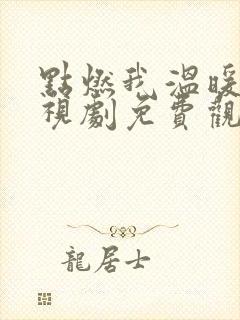 點燃我溫暖
視劇免費觀
龍居士